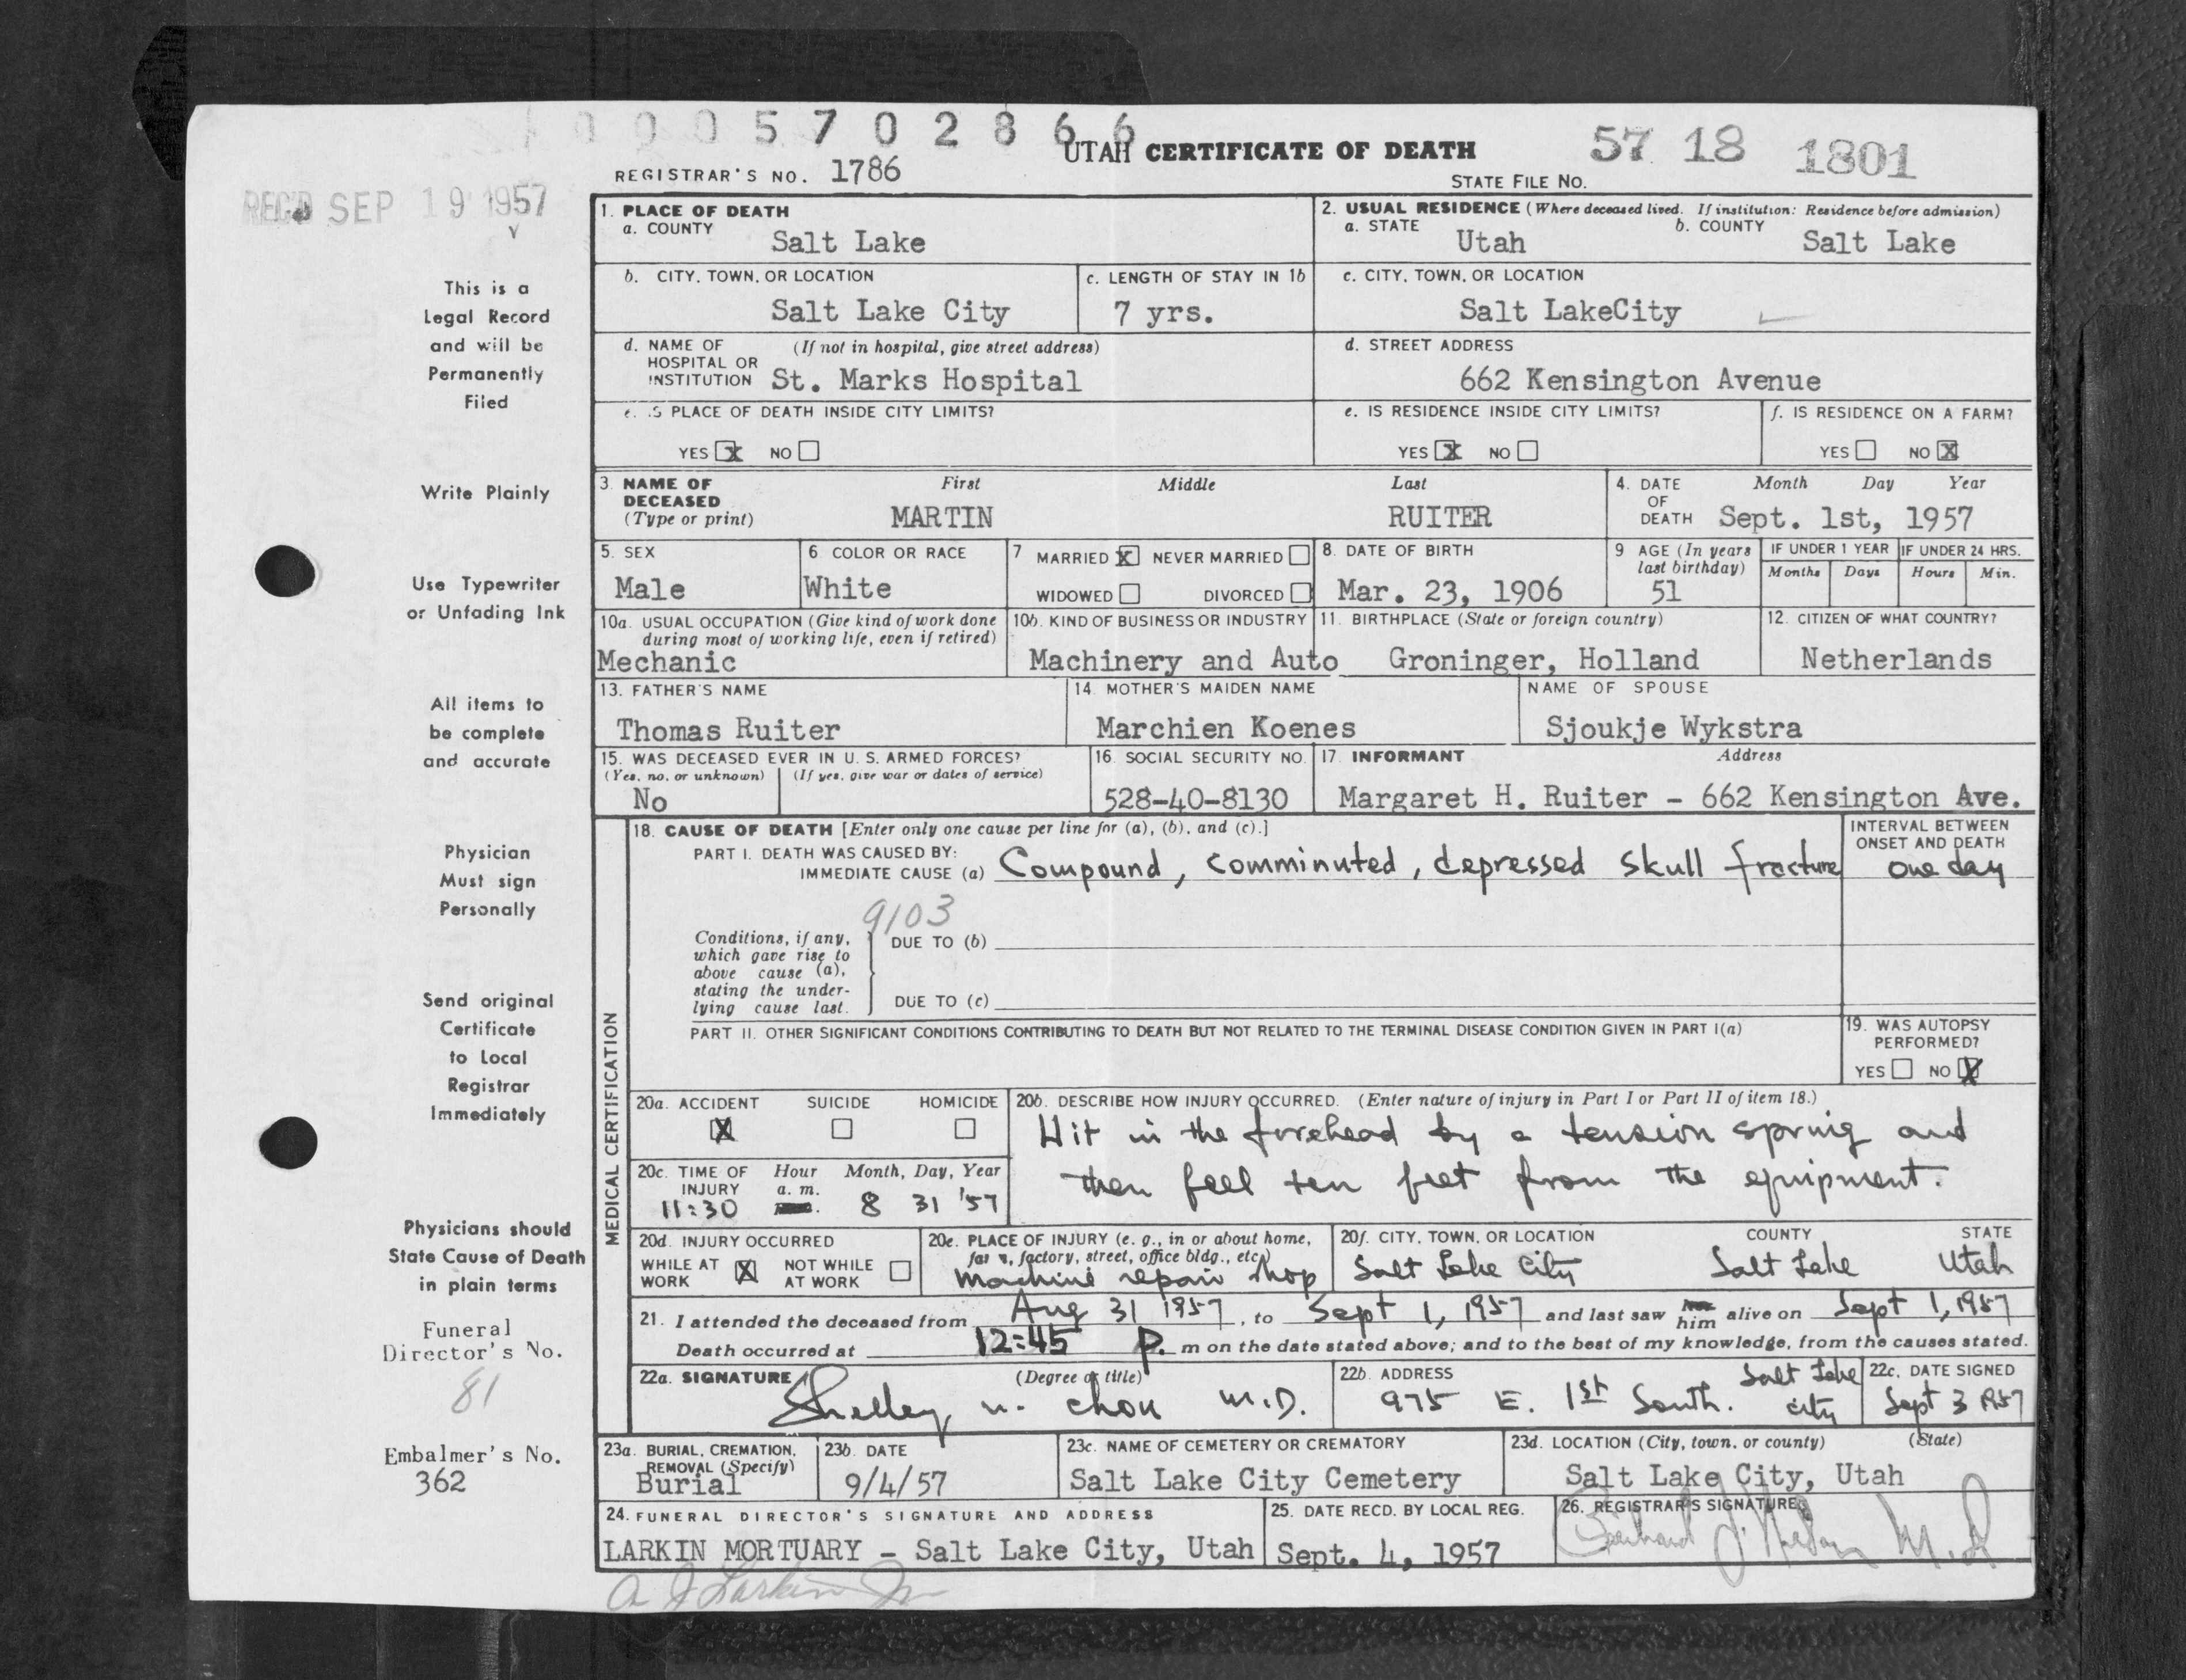 0 0 0 5 7 0 2 8 6 6
UTAH CERTIFICATE OF DEATH
57 18 1801
REGISTRAR'S NO. 1786
STATE FILE NO.
REC'D SEP 19 1957
This is a
Legal Record
and will be
Permanently
Filed
Write Plainly
Use Typewriter
or Unfading Ink
All items to
be complete
and accurate
Physician
Must sign
Personally
Send original
Certificate
to Local
Registrar
Immediately
Physicians should
State Cause of Death
in plain terms
Funeral
Director's No.
81
Embalmer's No.
362
1. PLACE OF DEATH
a. COUNTY
Salt Lake
2. USUAL RESIDENCE (Where deceased lived. If institution: Residence before admission)
a. STATE
Utah
b. COUNTY
Salt Lake
b. CITY, TOWN, OR LOCATION
Salt Lake City
c. LENGTH OF STAY IN 1b
7 yrs.
c. CITY, TOWN, OR LOCATION
Salt LakeCity
d. NAME OF (If not in hospital, give street address)
HOSPITAL OR
INSTITUTION St. Marks Hospital
d. STREET ADDRESS
662 Kensington Avenue
e. IS PLACE OF DEATH INSIDE CITY LIMITS?
YES X NO
e. IS RESIDENCE INSIDE CITY LIMITS?
YES X NO
f. IS RESIDENCE ON A FARM?
YES NO X
3. NAME OF DECEASED
(Type or print)
First Middle Last
MARTIN RUITER
4. DATE OF DEATH
Month Day Year
Sept. 1st, 1957
5. SEX
Male
6 COLOR OR RACE
White
7 MARRIED X NEVER MARRIED
WIDOWED DIVORCED
8. DATE OF BIRTH
Mar. 23, 1906
9 AGE (In years
last birthday)
51
IF UNDER 1 YEAR
Months Days
IF UNDER 24 HRS.
Hours Min.
10a. USUAL OCCUPATION (Give kind of work done
during most of working life, even if retired)
Mechanic
10b. KIND OF BUSINESS OR INDUSTRY
Machinery and Auto
11. BIRTHPLACE (State or foreign country)
Groninger, Holland
12. CITIZEN OF WHAT COUNTRY?
Netherlands
13. FATHER'S NAME
Thomas Ruiter
14. MOTHER'S MAIDEN NAME
Marchien Koenes
NAME OF SPOUSE
Sjoukje Wykstra
15. WAS DECEASED EVER IN U. S. ARMED FORCES?
(Yes, no, or unknown) (If yes, give war or dates of service)
No
16. SOCIAL SECURITY NO.
528-40-8130
17. INFORMANT Address
Margaret H. Ruiter - 662 Kensington Ave.
MEDICAL CERTIFICATION
18. CAUSE OF DEATH [Enter only one cause per line for (a), (b), and (c).]
PART I. DEATH WAS CAUSED BY:
IMMEDIATE CAUSE (a) Compound, comminuted, depressed skull fracture
INTERVAL BETWEEN
ONSET AND DEATH
one day
9103
Conditions, if any,
which gave rise to
above cause (a),
stating the under-
lying cause last.
DUE TO (b)
DUE TO (c)
PART II. OTHER SIGNIFICANT CONDITIONS CONTRIBUTING TO DEATH BUT NOT RELATED TO THE TERMINAL DISEASE CONDITION GIVEN IN PART I(a)
19. WAS AUTOPSY
PERFORMED?
YES NO X
20a. ACCIDENT SUICIDE HOMICIDE
X
20b. DESCRIBE HOW INJURY OCCURRED. (Enter nature of injury in Part I or Part II of item 18.)
Hit in the forehead by a tension spring and
then feel ten feet from the equipment.
20c. TIME OF INJURY
Hour Month, Day, Year
a. m.
11:30 8 31 '57
20d. INJURY OCCURRED
WHILE AT WORK X NOT WHILE AT WORK
20e. PLACE OF INJURY (e. g., in or about home,
farm, factory, street, office bldg., etc.)
Machine repair shop
20f. CITY, TOWN, OR LOCATION COUNTY STATE
Salt Lake City Salt Lake Utah
21. I attended the deceased from Aug 31 1957, to Sept 1, 1957 and last saw him alive on Sept 1, 1957
Death occurred at 12:45 P. m on the date stated above; and to the best of my knowledge, from the causes stated.
22a. SIGNATURE (Degree or title)
Shelley n. chou M.D.
22b. ADDRESS
975 E. 1st South. Salt Lake City
22c. DATE SIGNED
Sept 3 1957
23a. BURIAL, CREMATION,
REMOVAL (Specify)
Burial
23b. DATE
9/4/57
23c. NAME OF CEMETERY OR CREMATORY
Salt Lake City Cemetery
23d. LOCATION (City, town, or county) (State)
Salt Lake City, Utah
24. FUNERAL DIRECTOR'S SIGNATURE AND ADDRESS
LARKIN MORTUARY - Salt Lake City, Utah
25. DATE RECD. BY LOCAL REG.
Sept. 4, 1957
26. REGISTRAR'S SIGNATURE
M.D
a J Larkin Jr